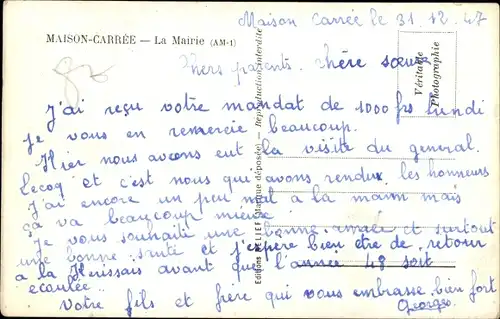 Maison Carrée le 31.12.47
MAISON-CARRÉE — La Mairie (AM-1)
Chers parents. chère sœur
J'ai reçu votre mandat de 1000 frs lundi
je vous en remercie beaucoup.
Hier nous avons eut la visite du general
Lecoq et c'est nous qui avons rendux les honneurs
J'ai encore un peu mal à la main mais
ça va beaucoup mieux
Je vous souhaite une bonne année et surtout
une bonne santé et j'espère bien etre de retour
a la avant que l'année 48 soit
ecoulée..
Votre fils et frère qui vous embrasse bien fort
Georges.
Véritable
Photographie
Editions (Marque déposée) — Reproduction interdite